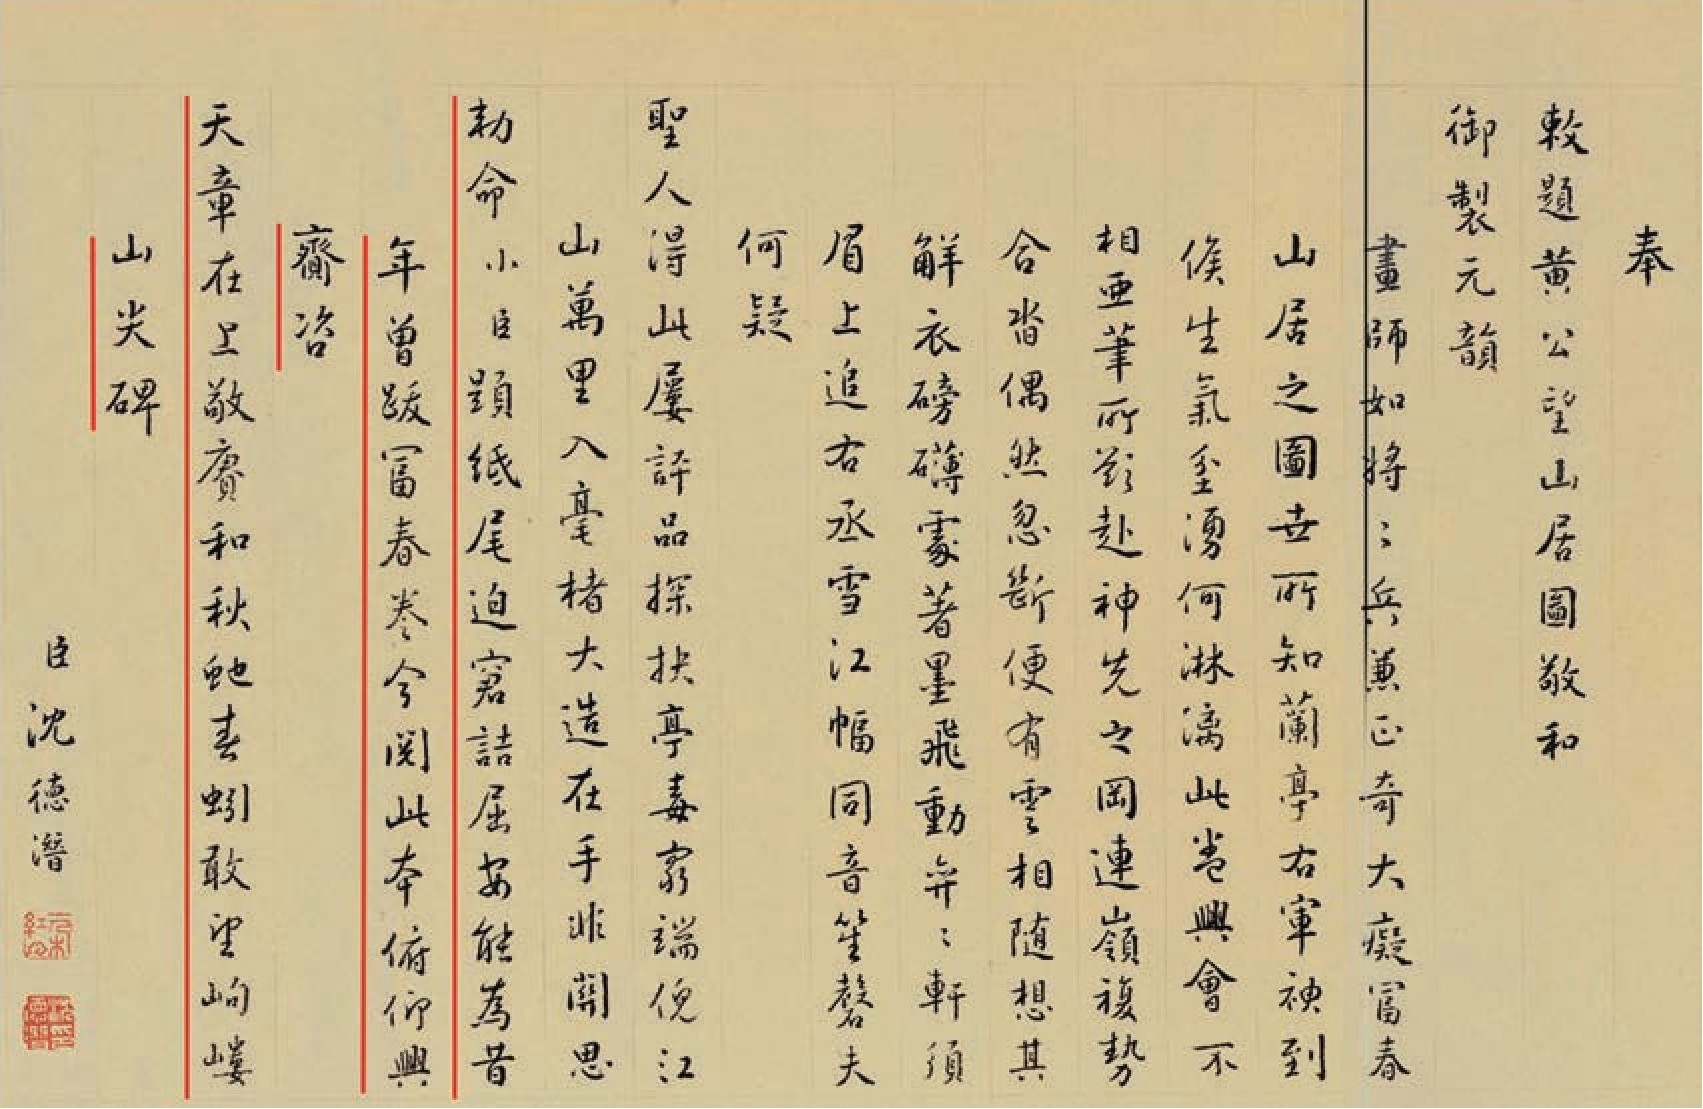 奉
敕題黃公望山居圖敬和
御製元韻
畫師如將〻兵兼正奇大癡富春
山居之圖世所知蘭亭右軍神到
候生氣坌湧何淋漓此卷興會不
相亞筆所欲赴神先之岡連嶺複勢
合沓偶然忽斷便有雲相隨想其
解衣磅礴處著墨飛動弈〻軒須
眉上追右丞雪江幅同音笙磬夫
何疑
聖人得此屢評品探抉亭毒窮端倪江
山萬里入毫楮大造在手非關思
勅命小臣題紙尾迫窘詰屈安能為昔
年曾跋富春卷今閱此本俯仰興
齎咨
天章在上敬賡和秋虵春蚓敢望岣嶁
山尖碑
臣沈德潛